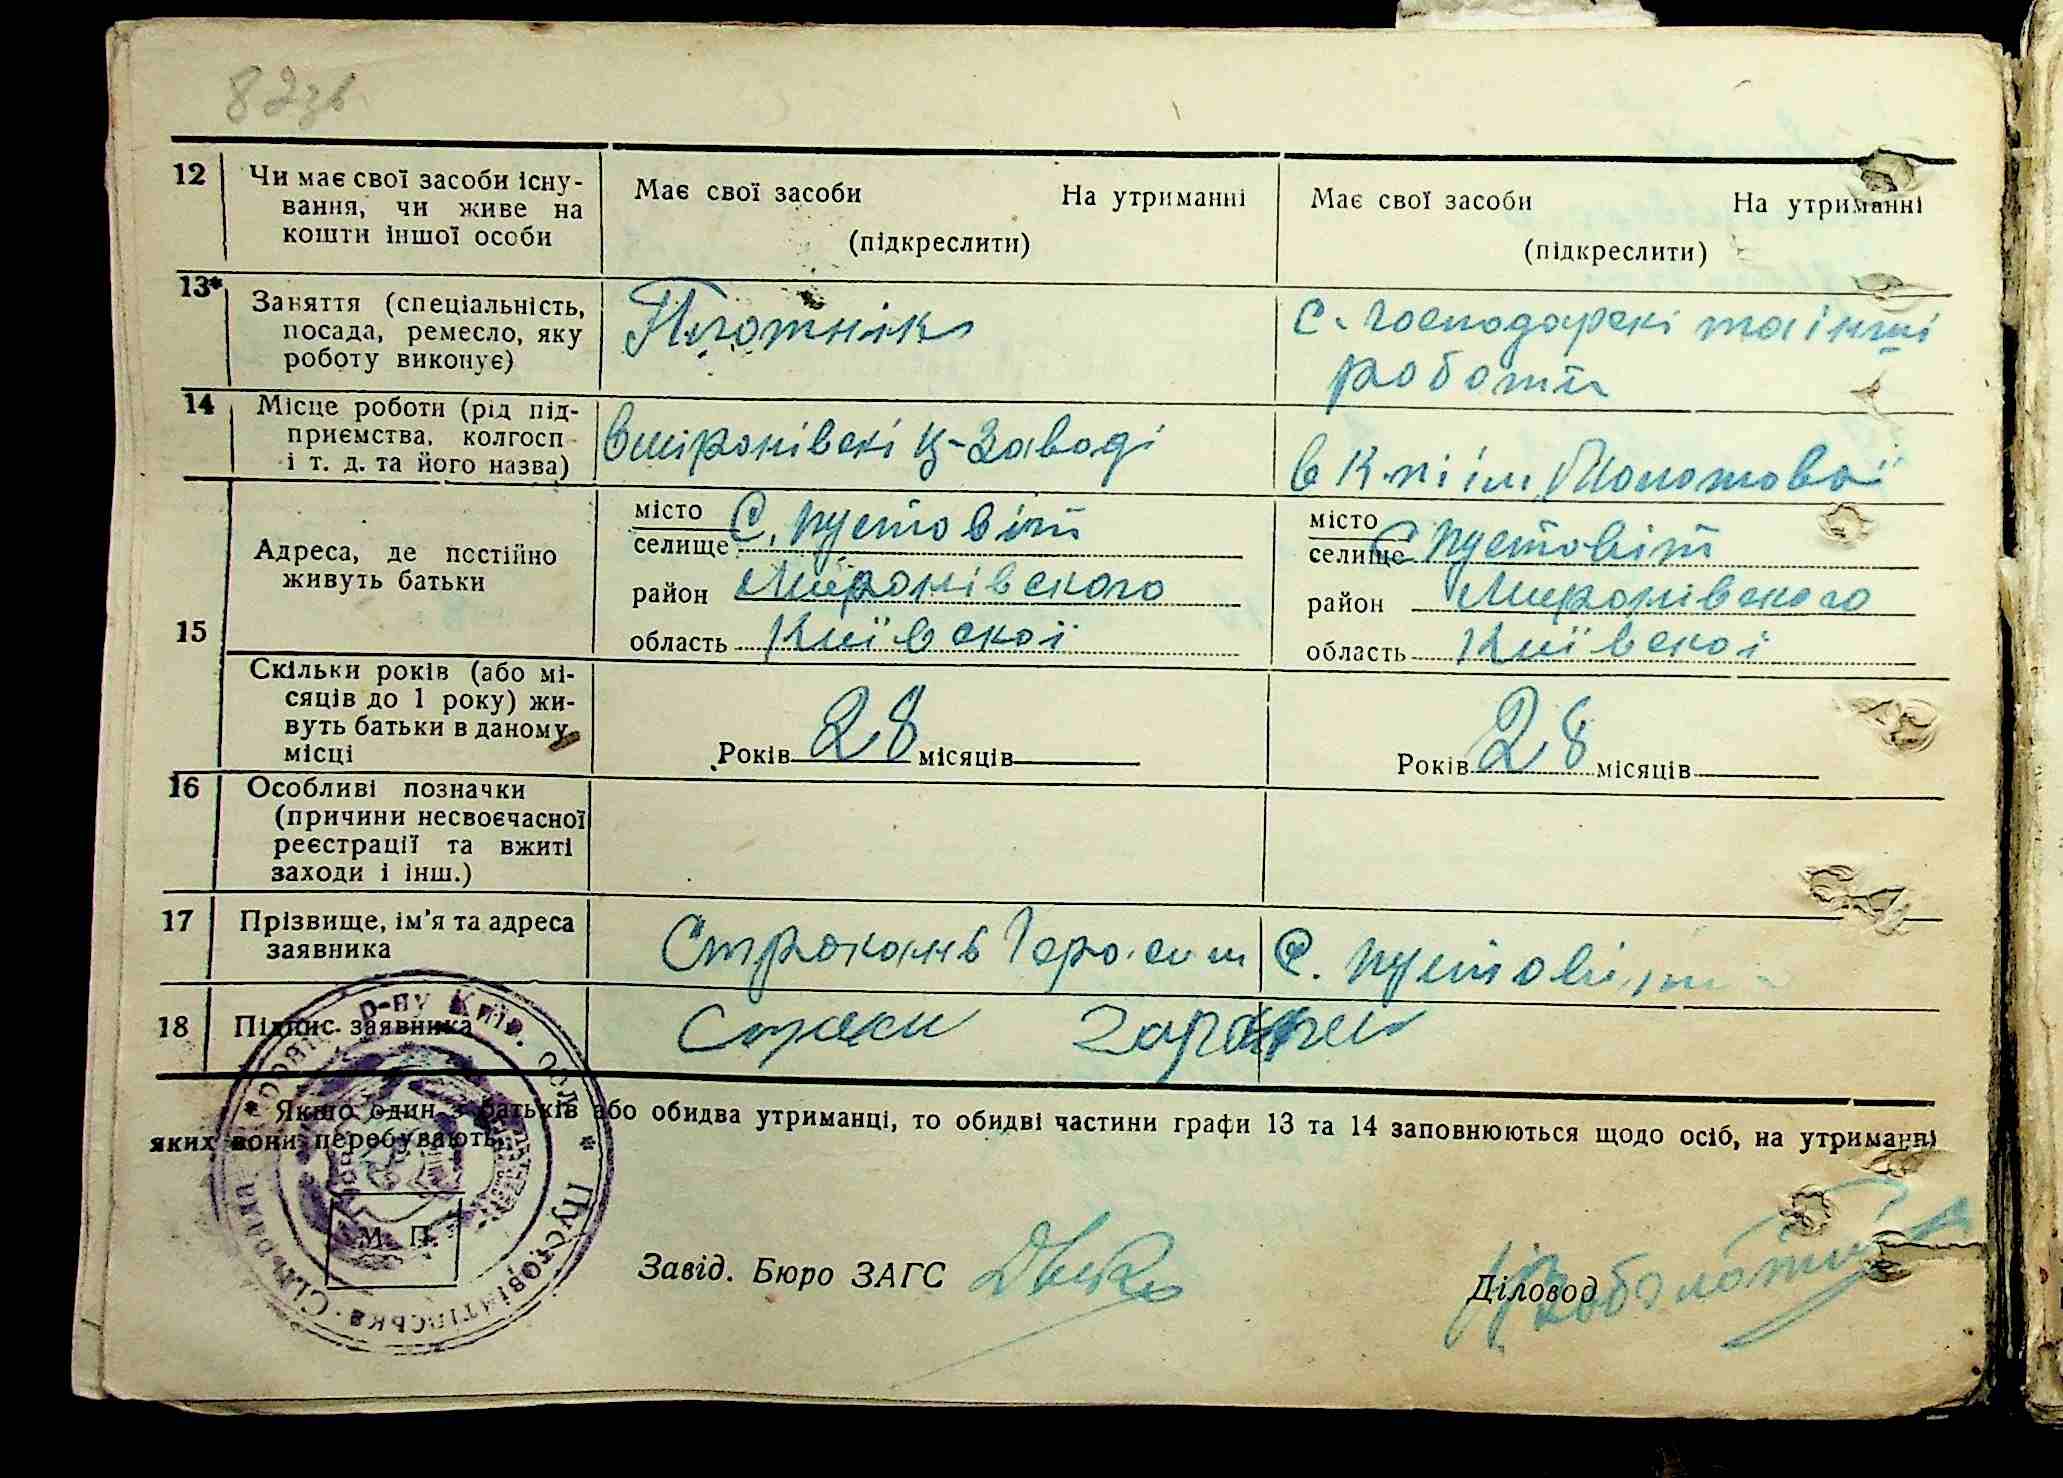 82зв
12 Чи має свої засоби існу-
вання, чи живе на
кошти іншої особи
Має свої засоби На утриманні
(підкреслити)
Має свої засоби На утриманні
(підкреслити)
13* Заняття (спеціальність,
посада, ремесло, яку
роботу виконує)
Плотник
с. господарскі та інші
роботи
14 Місце роботи (рід під-
приємства, колгосп
і т. д. та його назва)
в миронівскі ц-заводі
в к-пі ім. Молотова
15 Адреса, де постійно
живуть батьки
місто
селище С. Пустовіт
район Миронівского
область Київскої
місто
селище С Пустовіт
район Миронівского
область Київскої
Скільки років (або мі-
сяців до 1 року) жи-
вуть батьки в даному
місці
Років 28 місяців
Років 28 місяців
16 Особливі позначки
(причини несвоєчасної
реєстрації та вжиті
заходи і інш.)
17 Прізвище, ім'я та адреса
заявника
Строкань Герасим С. Пустовіт
18 Підпис заявника
* Якщо один з батьків або обидва утриманці, то обидві частини графи 13 та 14 заповнюються щодо осіб, на утриманні
яких вони перебувають.
р-ну Київ. обл. * Пустовітівська сільрада
М. П.
Завід. Бюро ЗАГС
Діловод